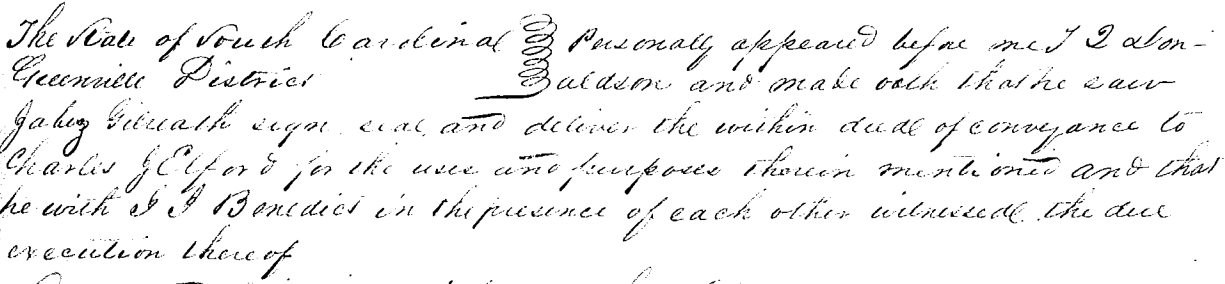 The State of South Carolina Personally appeared before me T Q Don-
Greenville District aldson and made oath that he saw
Jabez Gilreath sign seal and deliver the within deed of conveyance to
Charles J Elford for the uses and purposes therein mentioned and that
he with Benedict in the presence of each other witnessed the due
execution thereof